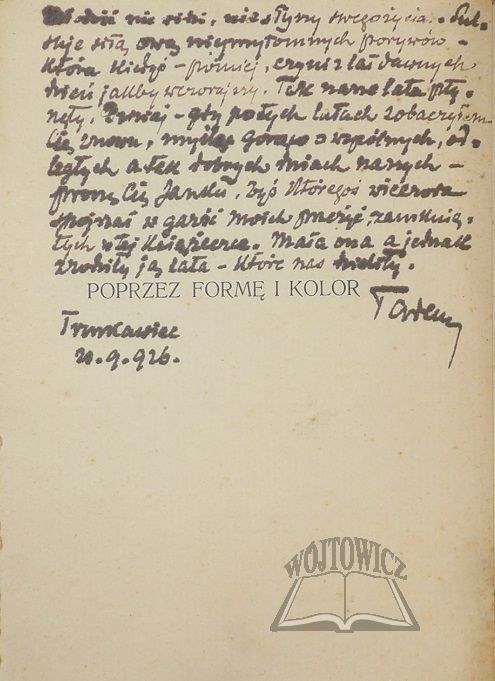 Młodość nie widzi, nie słyszy swego życia. Pul-
suje siłą ową nieprzytomnych porywów –
która kiedyś – później, czyni z lat dawnych
dzień jakby wczorajszy. Tak nasze lata pły-
nęły. Dzisiaj – gdy po tych latach zobaczyłem
Cię znowu, myśląc gorąco o wspólnych, od-
ległych a tak dobrych dniach naszych –
proszę Cię Janku, byś któregoś wieczora
spojrzał w garść moich przeżyć, zamknię-
tych w tej książeczce. Mała ona a jednak
zrodziły ją lata – które nas dzieliły.
POPRZEZ FORMĘ I KOLOR
Truskawiec
20.9.926.
WÓJTOWICZ